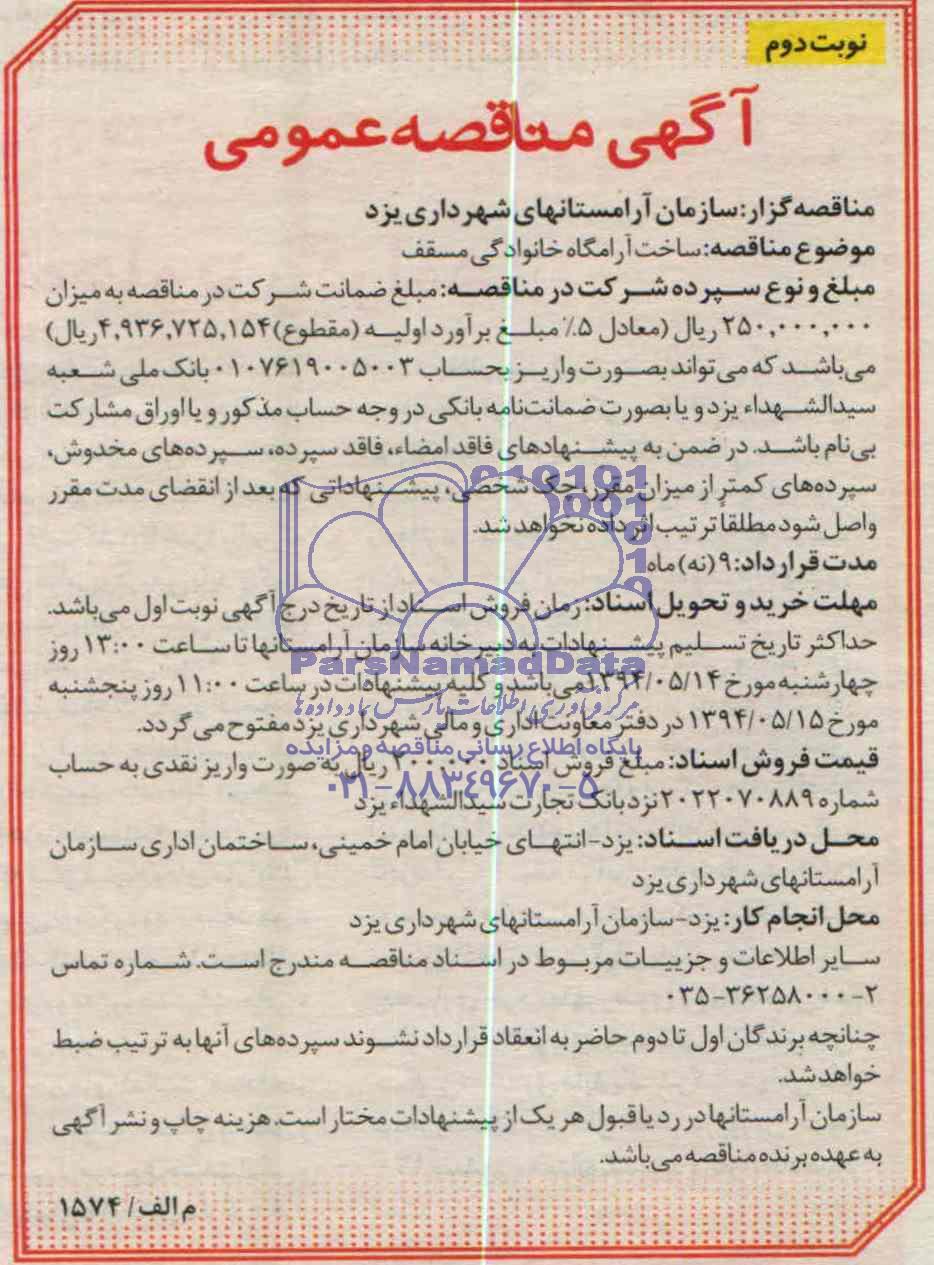 نوبت دوم
آگهی مناقصه عمومی
مناقصه گزار: سازمان آرامستانهای شهرداری یزد
موضوع مناقصه: ساخت آرامگاه خانوادگی مسقف
مبلغ و نوع سپرده شرکت در مناقصه: مبلغ ضمانت شرکت در مناقصه به میزان
۲۵۰,۰۰۰,۰۰۰ ریال (معادل ۵٪ مبلغ برآورد اولیه (مقطوع) ۴,۹۳۶,۷۲۵,۱۵۴ ریال)
می‌باشد که می‌تواند بصورت واریز بحساب ۰۱۰۷۶۱۹۰۰۵۰۰۳ بانک ملی شعبه
سیدالشهداء یزد و یا بصورت ضمانت‌نامه بانکی در وجه حساب مذکور و یا اوراق مشارکت
بی‌نام باشد. در ضمن به پیشنهادهای فاقد امضاء، فاقد سپرده، سپرده‌های مخدوش،
سپرده‌های کمتر از میزان مقرر، چک شخصی، پیشنهاداتی که بعد از انقضای مدت مقرر
واصل شود مطلقاً ترتیب اثر داده نخواهد شد.
مدت قرارداد: ۹ (نه) ماه
مهلت خرید و تحویل اسناد: زمان فروش اسناد از تاریخ درج آگهی نوبت اول می‌باشد.
حداکثر تاریخ تسلیم پیشنهادات به دبیرخانه سازمان آرامستانها تا ساعت ۱۳:۰۰ روز
چهارشنبه مورخ ۱۳۹۴/۰۵/۱۴ می‌باشد و کلیه پیشنهادات در ساعت ۱۱:۰۰ روز پنجشنبه
مورخ ۱۳۹۴/۰۵/۱۵ در دفتر معاونت اداری و مالی شهرداری یزد مفتوح می گردد.
قیمت فروش اسناد: مبلغ فروش اسناد ریال به صورت واریز نقدی به حساب
شماره ۲۰۲۲۰۷۰۸۸۹ نزد بانک تجارت سیدالشهداء یزد
محل دریافت اسناد: یزد-انتهای خیابان امام خمینی، ساختمان اداری سازمان
آرامستانهای شهرداری یزد
محل انجام کار: یزد-سازمان آرامستانهای شهرداری یزد
سایر اطلاعات و جزییات مربوط در اسناد مناقصه مندرج است. شماره تماس
۰۳۵-۳۶۲۵۸۰۰۰-۲
چنانچه برندگان اول تا دوم حاضر به انعقاد قرارداد نشوند سپرده‌های آنها به ترتیب ضبط
خواهد شد.
سازمان آرامستانها در رد یا قبول هر یک از پیشنهادات مختار است. هزینه چاپ و نشر آگهی
به عهده برنده مناقصه می‌باشد.
م الف/ ۱۵۷۴
ParsNamadData
مرکز فرآوری اطلاعات پارس نماد داده ها
پایگاه اطلاع رسانی مناقصه و مزایده
۰۲۱-۸۸۳۴۹۶۷۰-۵